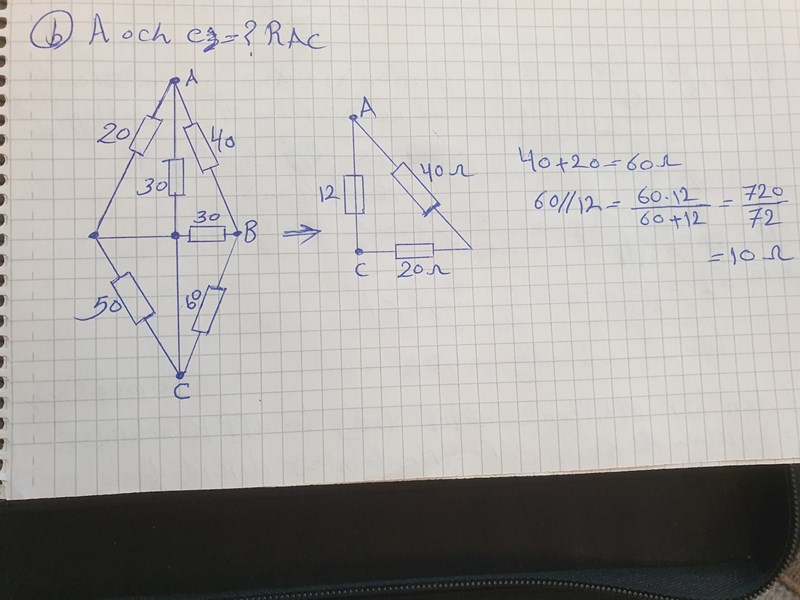 b) A och C = ? RAC
A
20
40
30
30
B
50
60
C
A
12
40 Ω
C
20 Ω
40+20=60 Ω
60//12 = 60·12 / 60+12 = 720 / 72
= 10 Ω